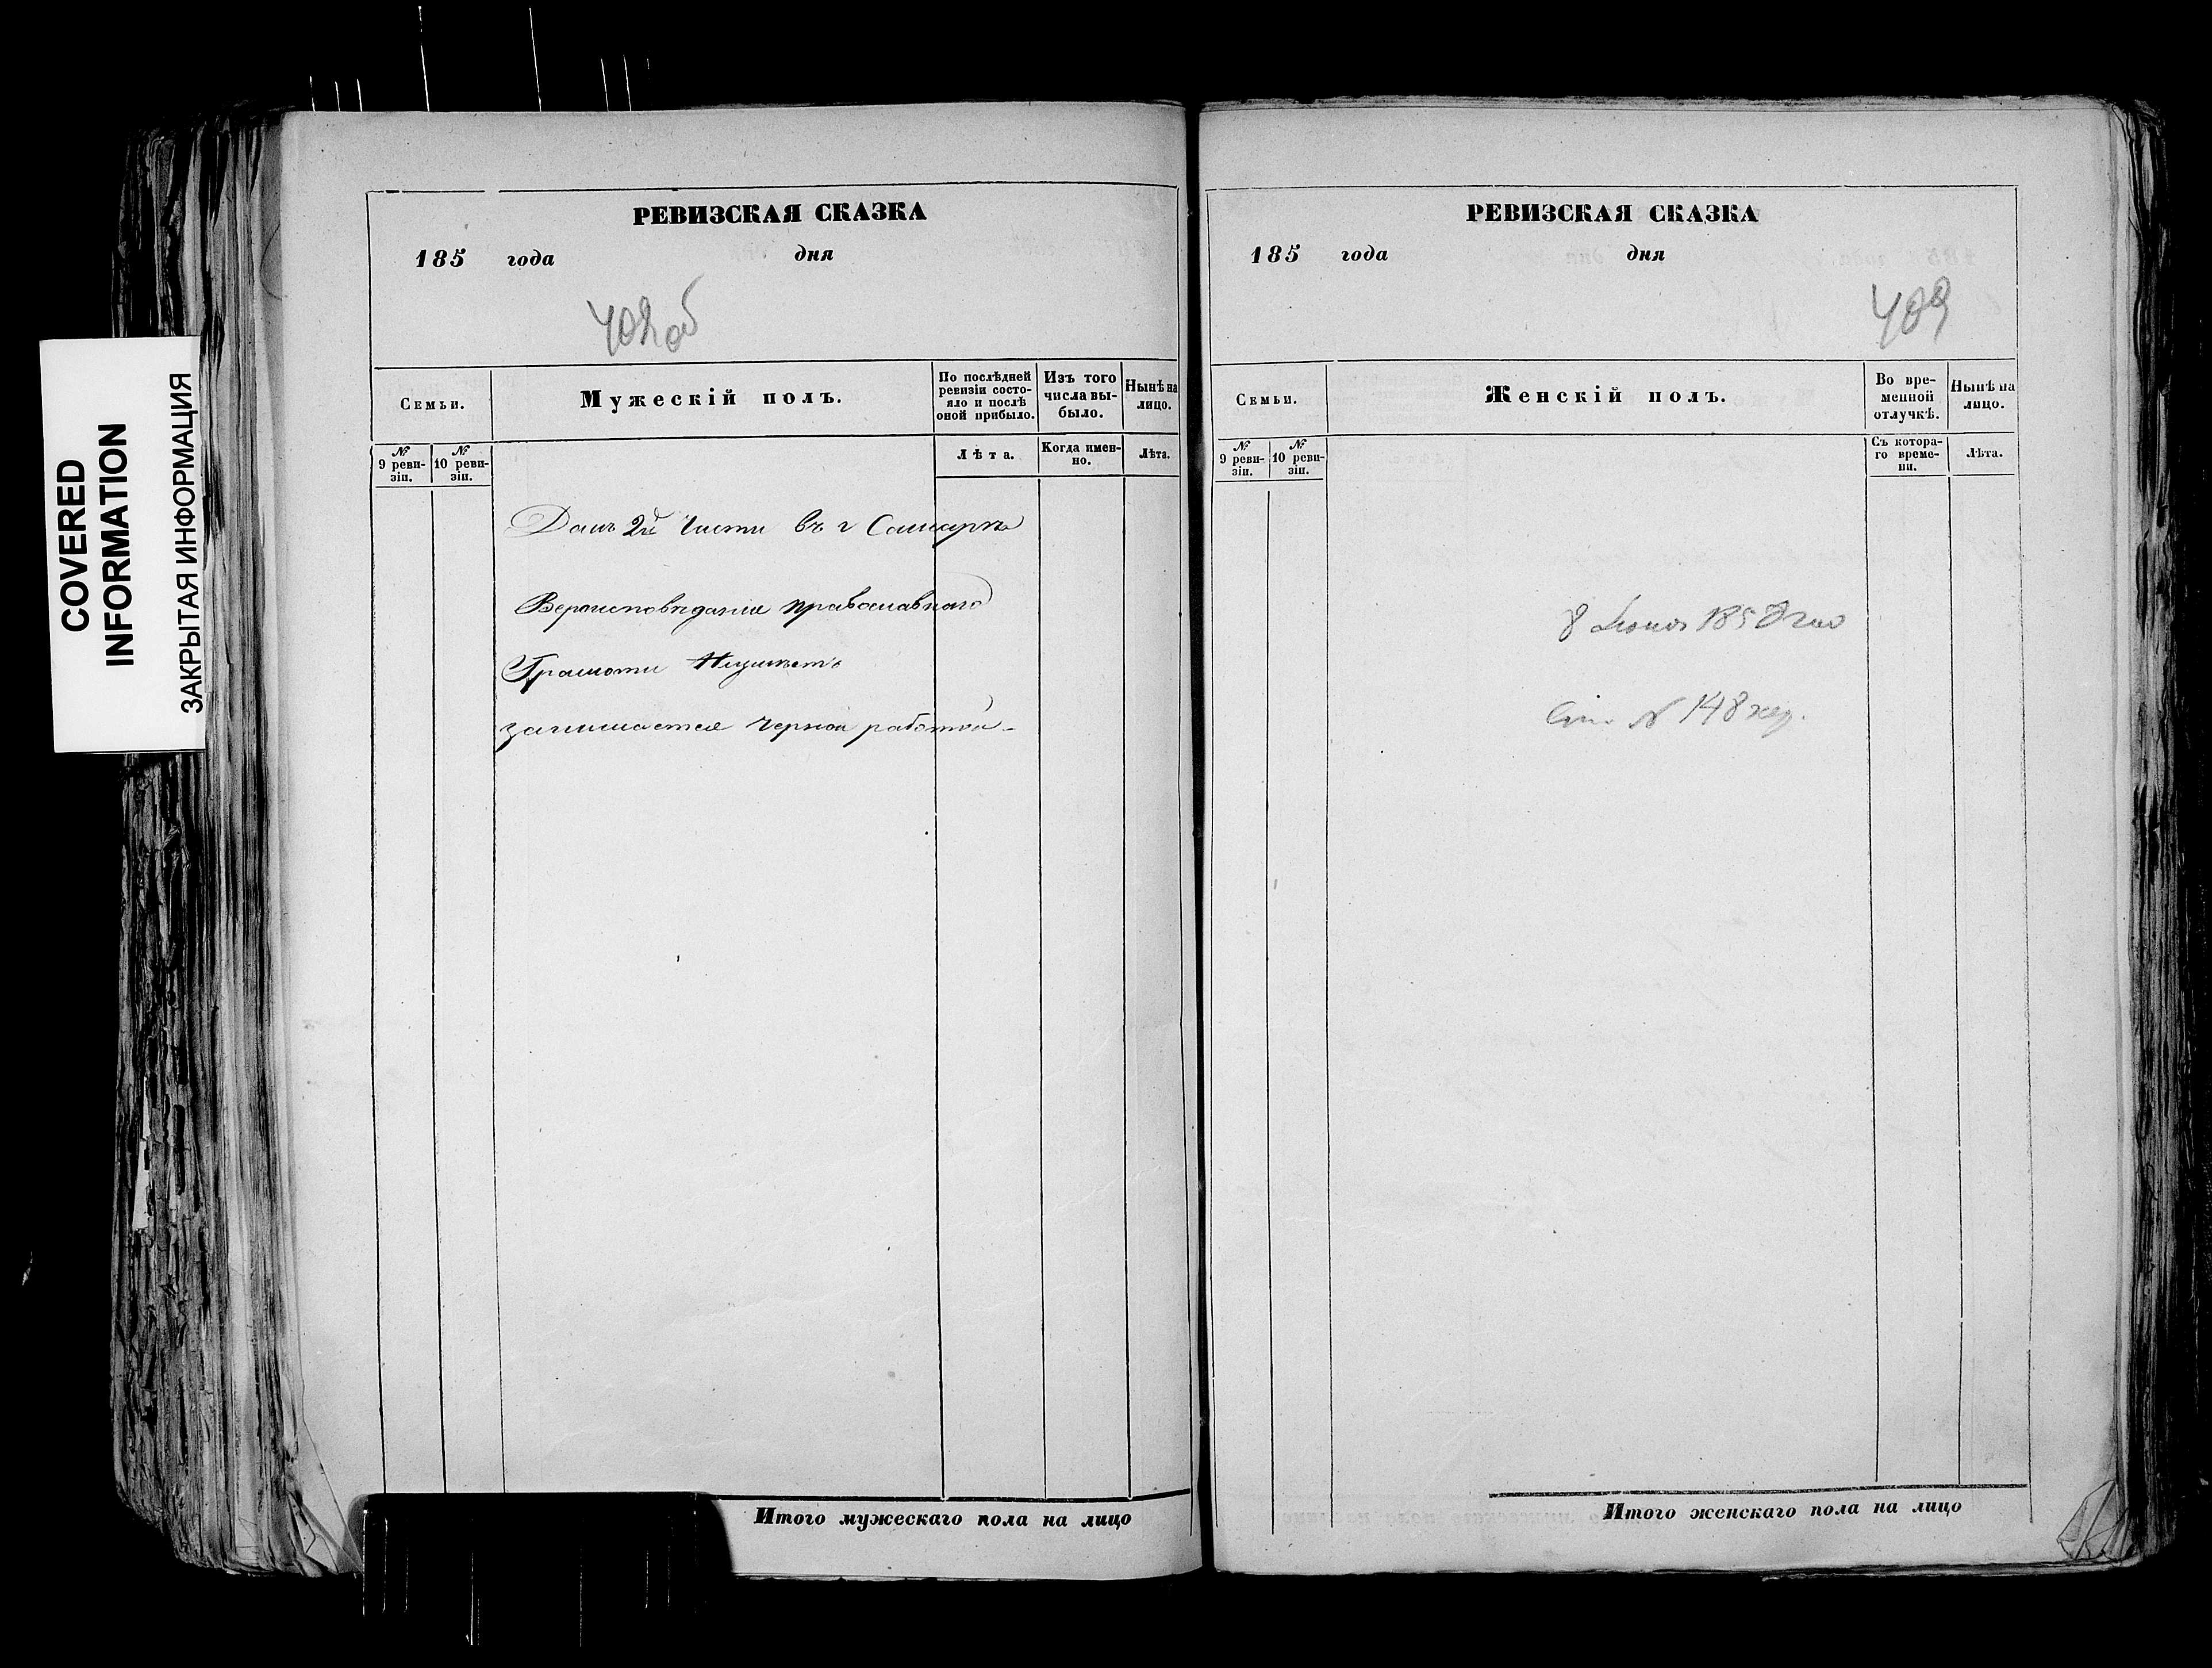 COVERED
INFORMATION
ЗАКРЫТАЯ ИНФОРМАЦИЯ
РЕВИЗСКАЯ СКАЗКА
185 года дня
408об
Семьи.
Мужескій полъ.
По послѣдней
ревизіи состо-
яло и послѣ
оной прибыло.
Изъ того
числа вы-
было.
Нынѣ на
лицо.
№
9 реви-
зіи.
№
10 реви-
зіи.
Лѣта.
Когда имен-
но.
Лѣта.
Домъ 2й Части въ г Самарѣ
Вероисповѣданія православнаго
Грамоти Неумѣетъ
занимается черной работой -
Итого мужескаго пола на лицо
РЕВИЗСКАЯ СКАЗКА
185 года дня
409
Семьи.
Женскій полъ.
Во вре-
менной
отлучкѣ.
Нынѣ на
лицо.
№
9 реви-
зіи.
№
10 реви-
зіи.
Съ котора-
го време-
ни.
Лѣта.
8 185
№ 148
Итого женскаго пола на лицо